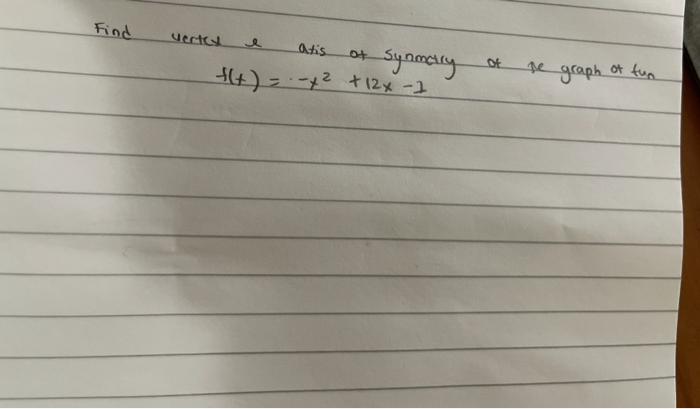 Find vertex & axis of symmetry of the graph of fun
f(x) = -x² + 12x - 1